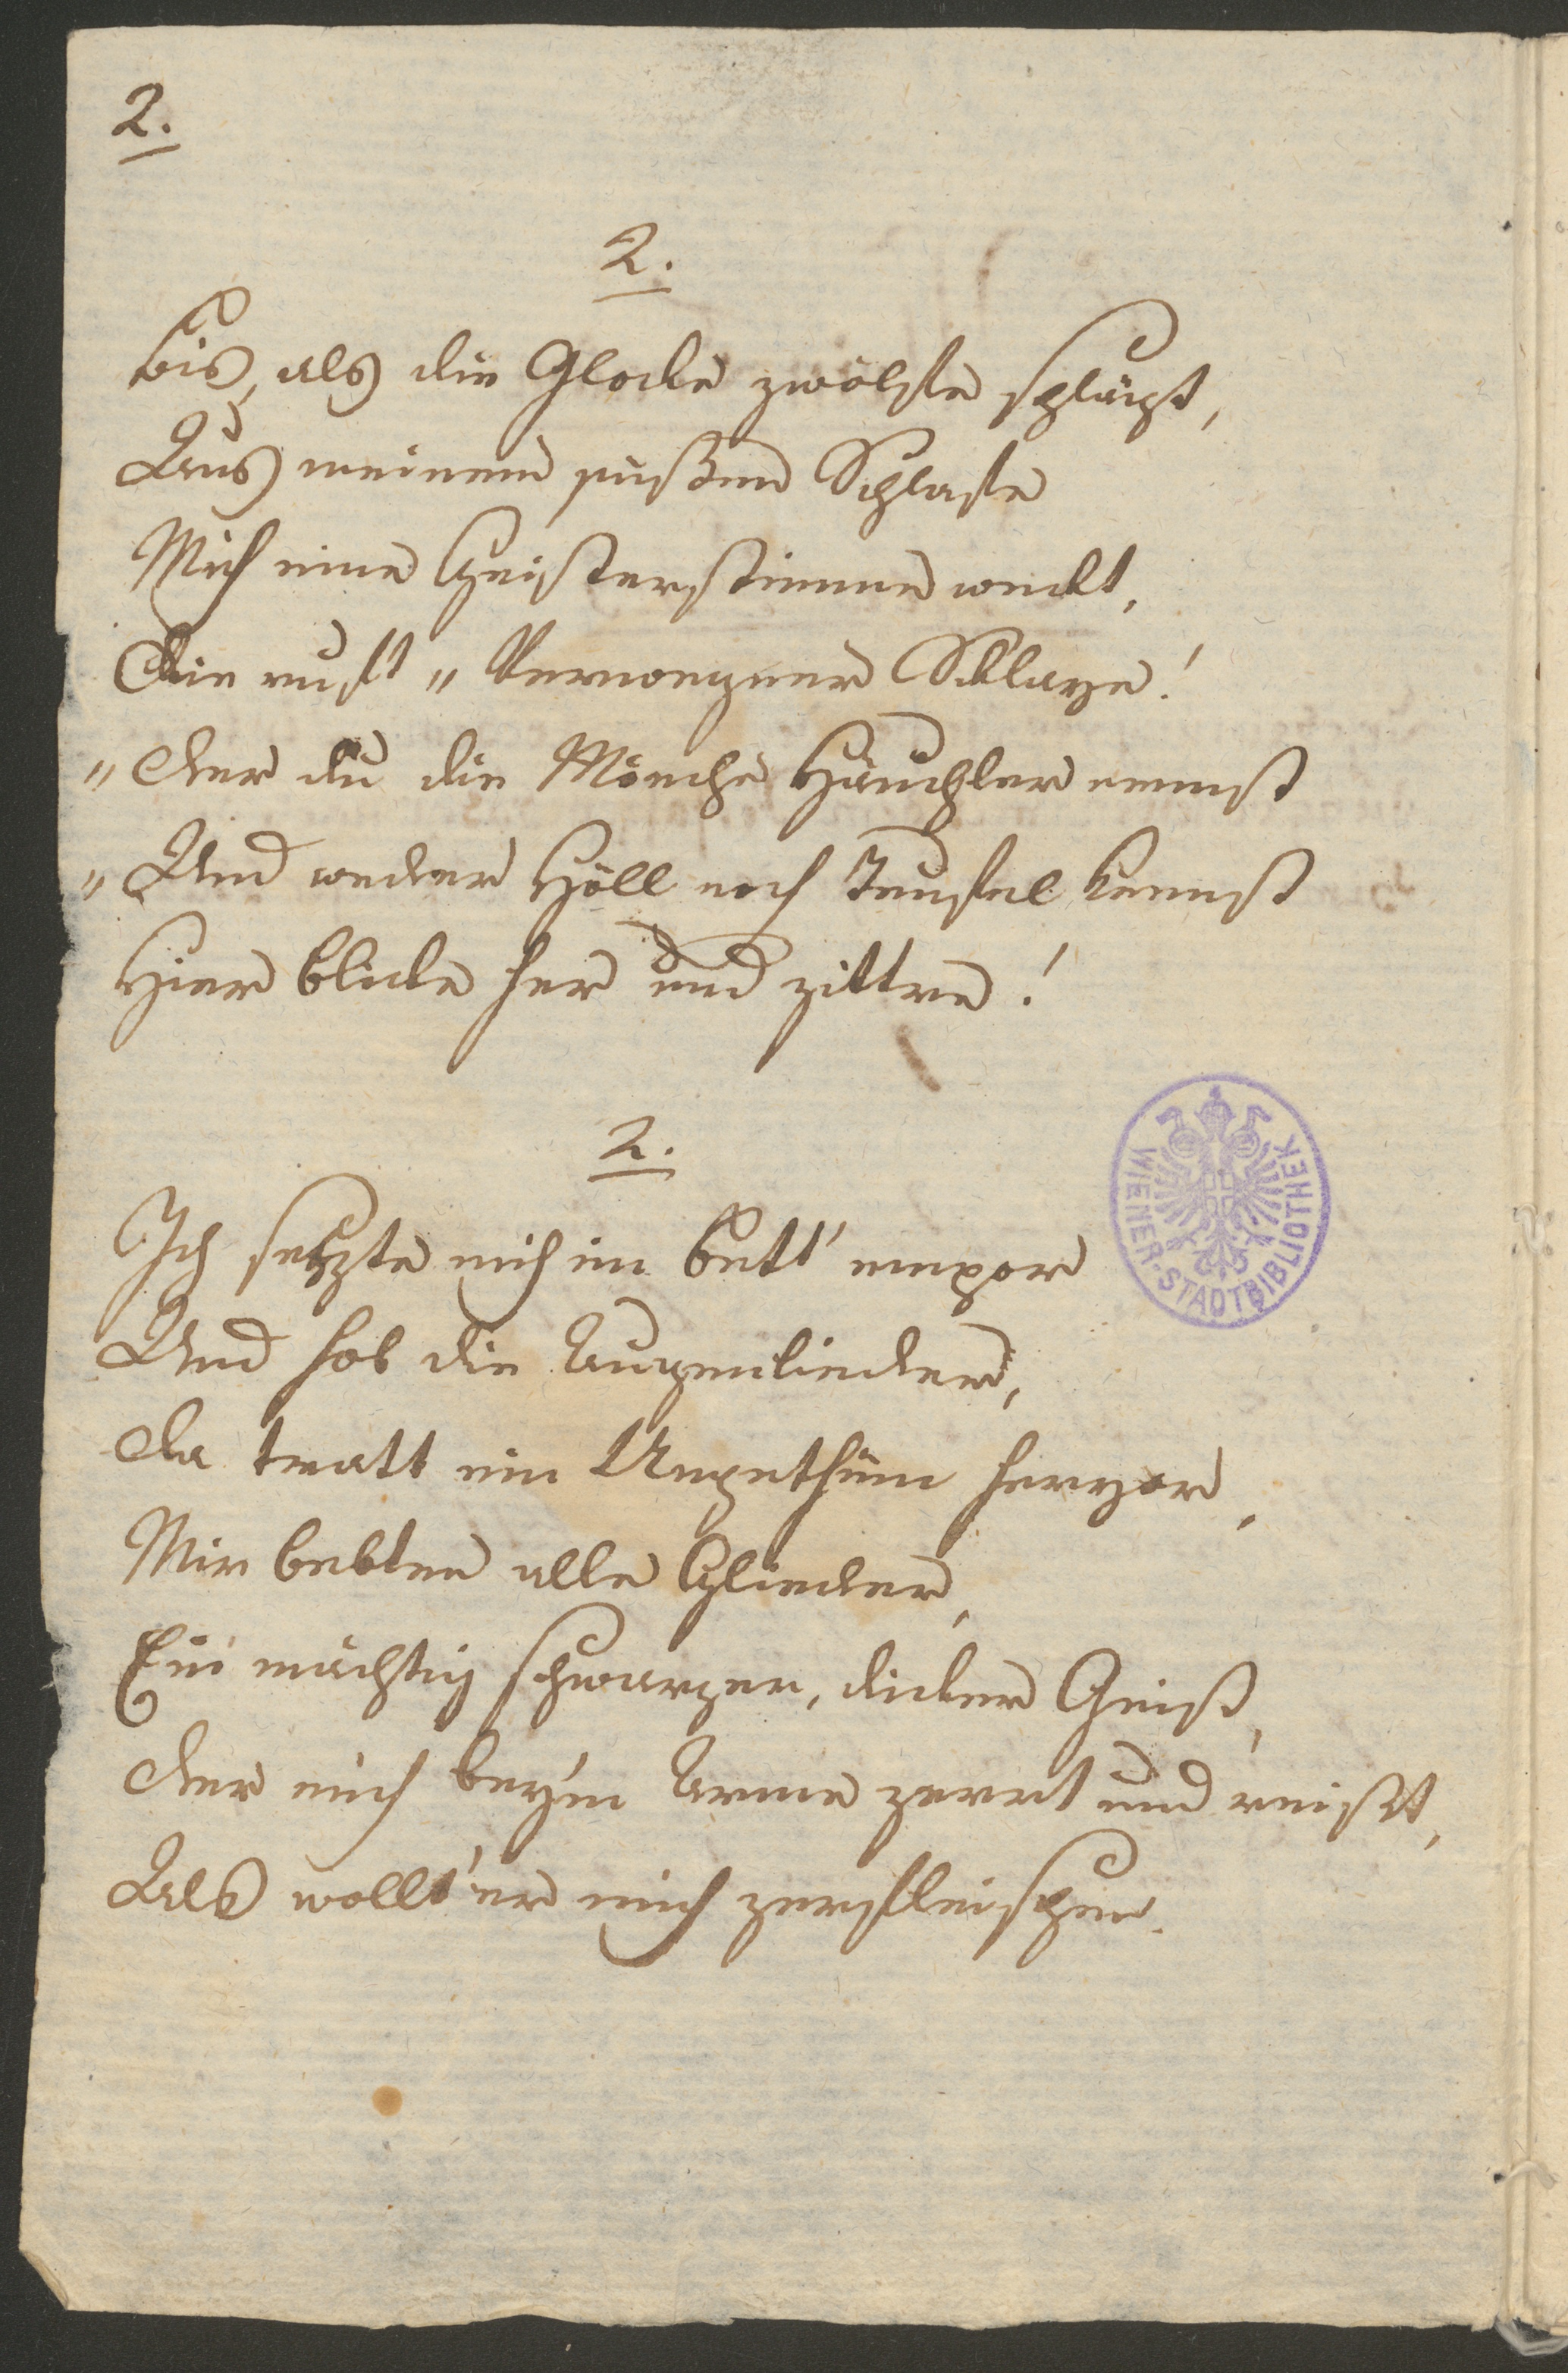 2.
2.
Bis, als die Glocke zwölfe schlägt,
Aus meinem süßen Schlafe
Mich eine Geisterstimme weckt,
Die ruft „ Verwegner Sklave!
„ Der du die Mönche Häuchler nennst
„ Und weder Höll noch Teufel kennst
Hier blicke her und zittre!
2.
Ich setzte mich im Bett' empor
Und hob die Augenlieder,
Da tratt ein Ungethüm hervor,
Mir bebten alle Glieder,
Ein mächtig schwarzer, dicker Geist,
Der mich bey'm Arme zerrt und reißt,
Als wollt' er mich zerfleischen.
WIENER-STADTBIBLIOTHEK